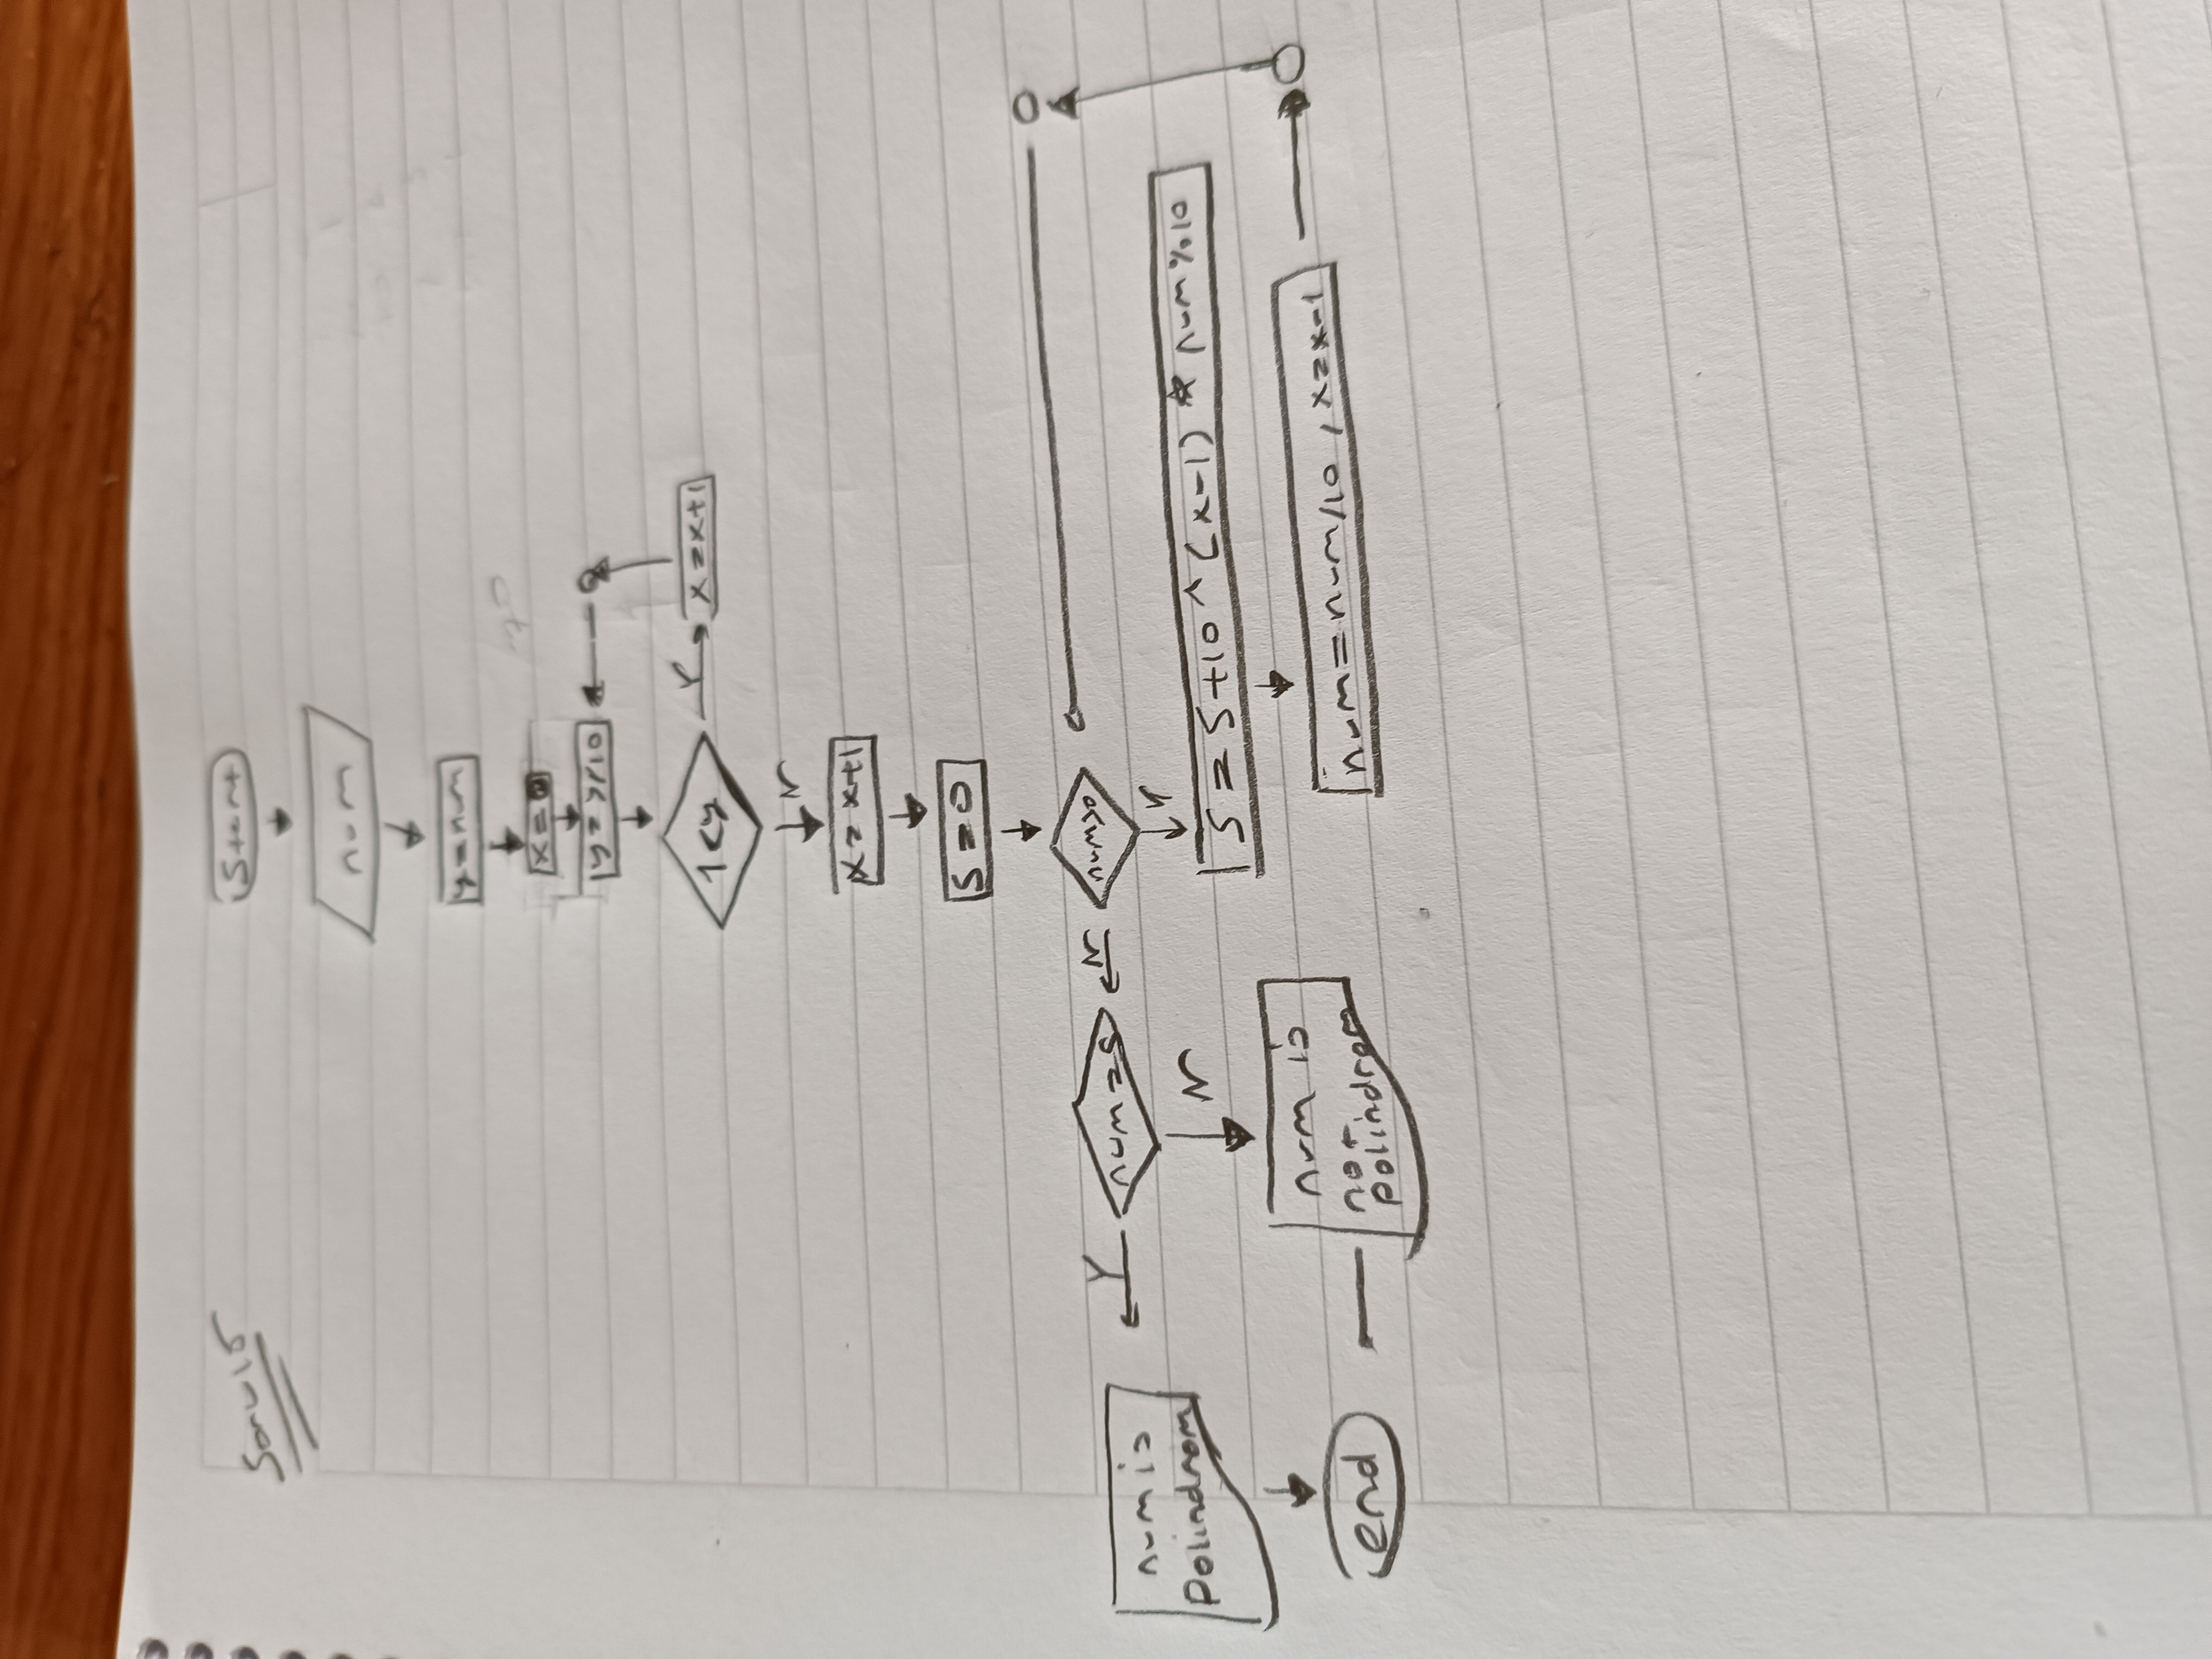 Soru 16
Start
num
y=num
x=0
y=y/10
1<y
Y
x=x+1
N
x=x+1
S=0
0<num
Y
S=S+10^(x-1)*num%10
num=num/10, x=x-1
N
num=S
N
num is
not
polindrom
Y
num is
polindrom
end